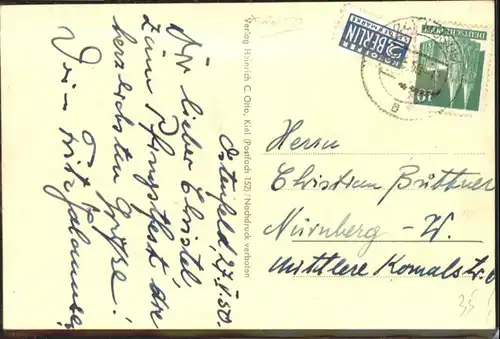 Ostenfeld 27.V.50.
Dir lieber Christel
zum Pfingstfest die
herzlichsten Grüße!
Dein
Verlag Heinrich C. Otto, Kiel (Postfach 152) / Nachdruck verboten
NOTOPFER
2 BERLIN
STEUERMARKE
DEUTSCHE POST
10
Herrn
Christian Büttner
Nürnberg - W.
Mittlere
35